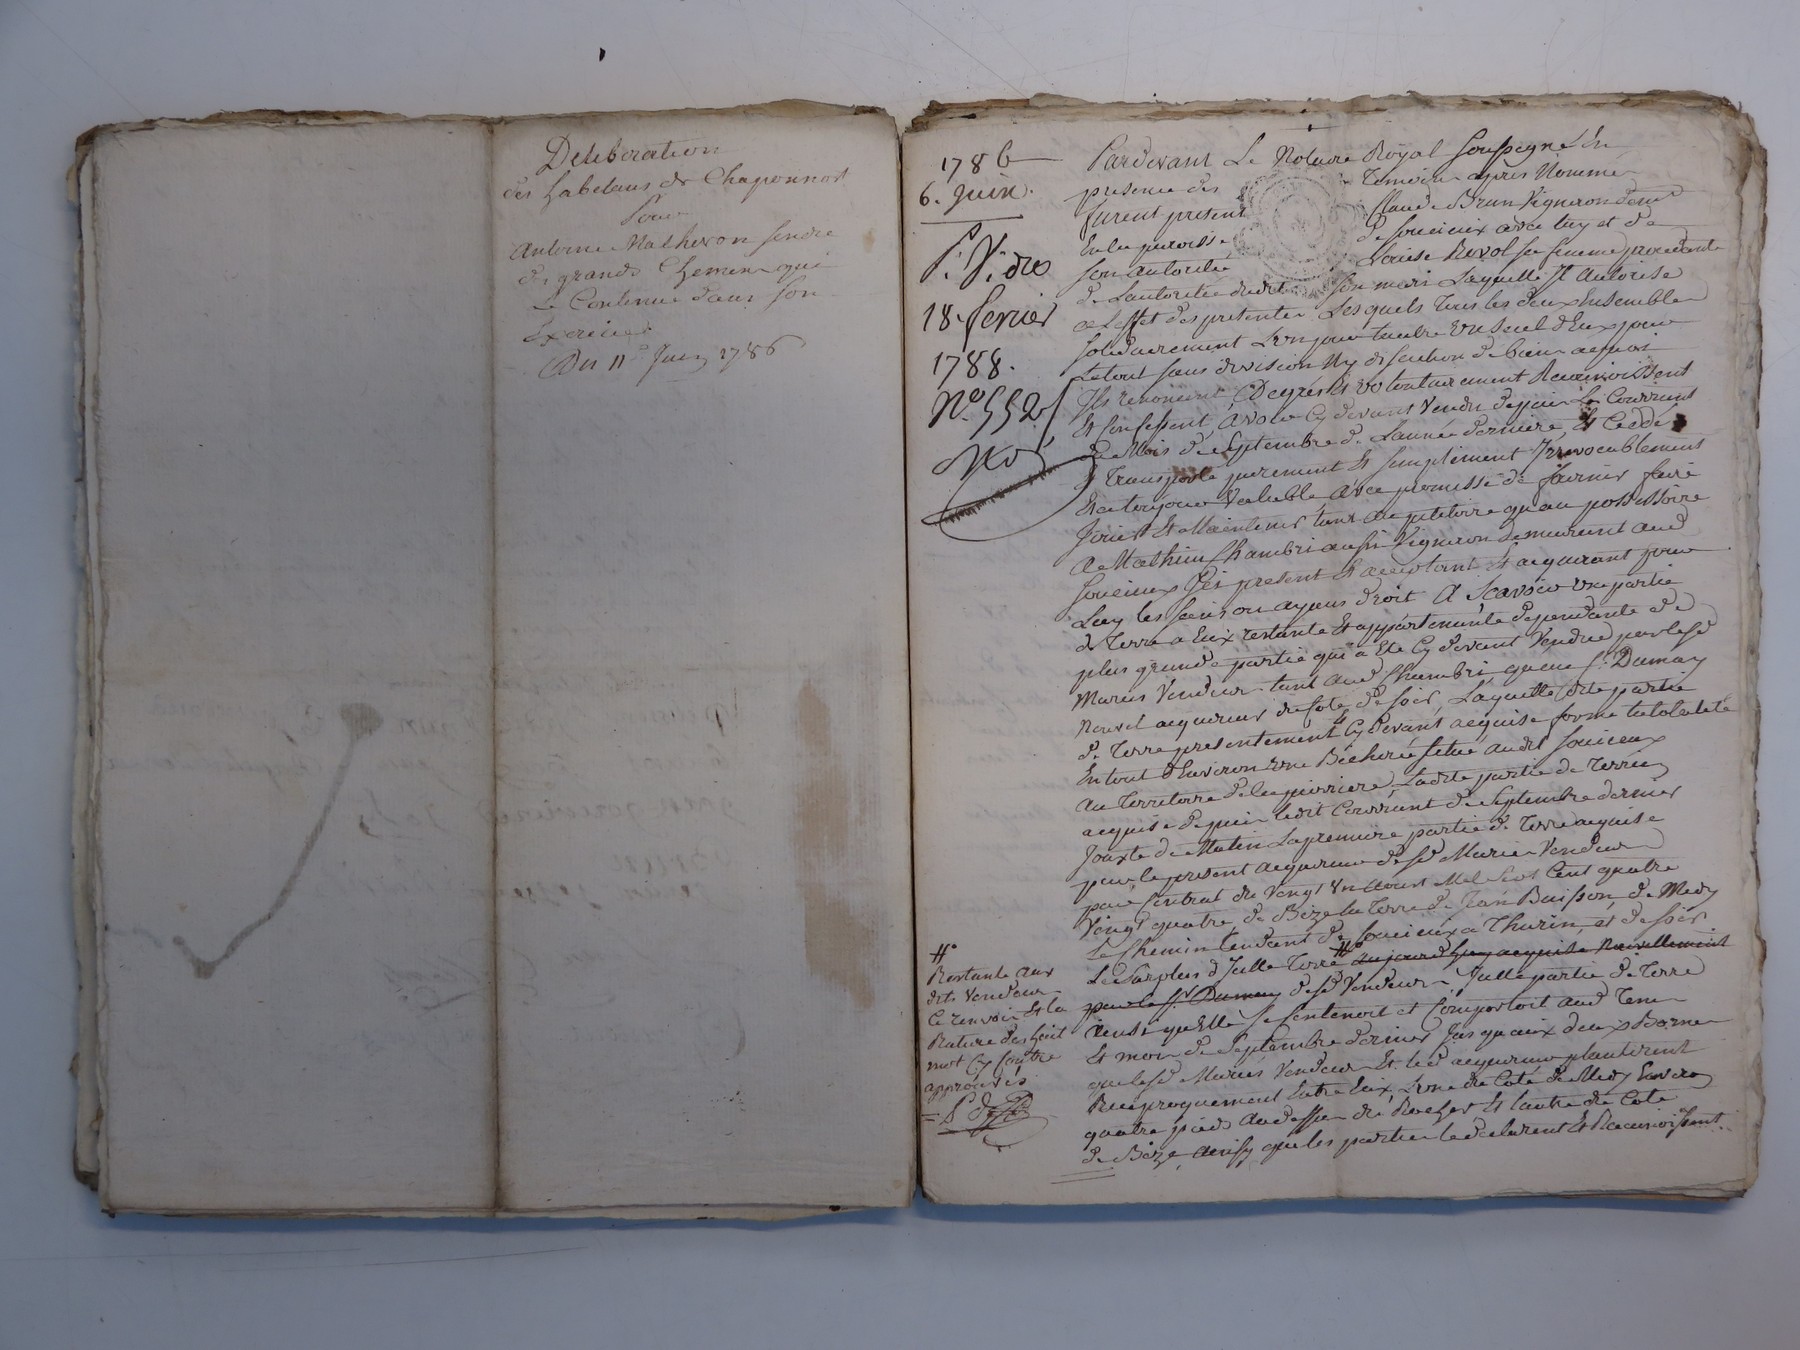 Deliberation
des habitans de Chaponnost
Pour
Antoine Matheron sindic
des grands Chemins qui
Le Continue dans son
Exercice
Du 11e Juin 1786
1786
6. Juin.
18. fevrier
1788.
N.º 552
Pardevant Le Notaire Royal soussigné En
presence des Temoins apres Nommés
furent present Claude Brun Vigneron demt
En la paroisse de soucieux avec luy et de
son autorité Louise Revol sa femme procedante
de Lautorité dudit son mari Laquelle Il Autorise
a Leffet des presentes Lesquels Tous les deux Ensemble
solidairement Lun pour Lautre un seul d'Eux pour
Le tout sans division Ny discution de biens a quoy
Ils renoncent, De gres et volontairement Reconnoissent
Et confessent Avoir Cy devant Vendu depuis Le Courrant
du Mois de Septembre de Lannée derniere, Et Cedé
Transporté purement Et simplement Irrevocablement
Et a toujours Valable Avec promesse de fournir faire
Jouir Et Maintenir tant au petitoire qu'au possessoire
A Mathieu Chambri aussi Vigneron demeurant aud
soucieux Ici present Et acceptant Et acquerant pour
Luy les siens ou ayans droit A Scavoir une partie
de Terre a Eux restante Et appartenante dependante de
plus grande partie qui a Eté Cy devant Vendue par lesd
Mariés Vendeurs tant aud Chambri que au Sr. Dumay
Nouvel acquereur du Coté de soir, Laquelle dite partie
de Terre presentement Et Cy devant acquise forme la totalité
En tout d'Environ une Bicherée située audit soucieux
Au Territoire de la perriere, Ladite partie de Terre
acquise depuis ledit Courrant de Septembre dernier
Jouxte de Matin La premiere partie de Terre acquise
par le present acquereur desd Mariés Vendeurs
par Contrat du Vingt un Aoust Mil Sept Cent quatre
Vingt quatre de Bize la Terre de Jean Buisson de Midy
Le Chemin tendant de soucieux a Thurin, et de soir
Le surplus d'Jcelle Terre #º aujourdhuy acquise Nouvellement
par le Sr. Dumay desd Vendeurs Jcelle partie de Terre
Ainsi quelle se Contenoit et Comportoit aud Tems
Et mois de Septembre dernier Jusqu'aux deux Bornes
que lesd Mariés Vendeurs Et led acquereur planterent
Reciproquement Entre Eux, L'une du Coté de Midy Environ
quatre pieds au dessus du Rocher Et lautre du Coté
de Bize, ainsy que les parties le declarent Et Reconnoissent
#º
Restante aux
dits Vendeurs
Ce renvoi Et la
Rature de huit
mot Cy Contre
approuvés